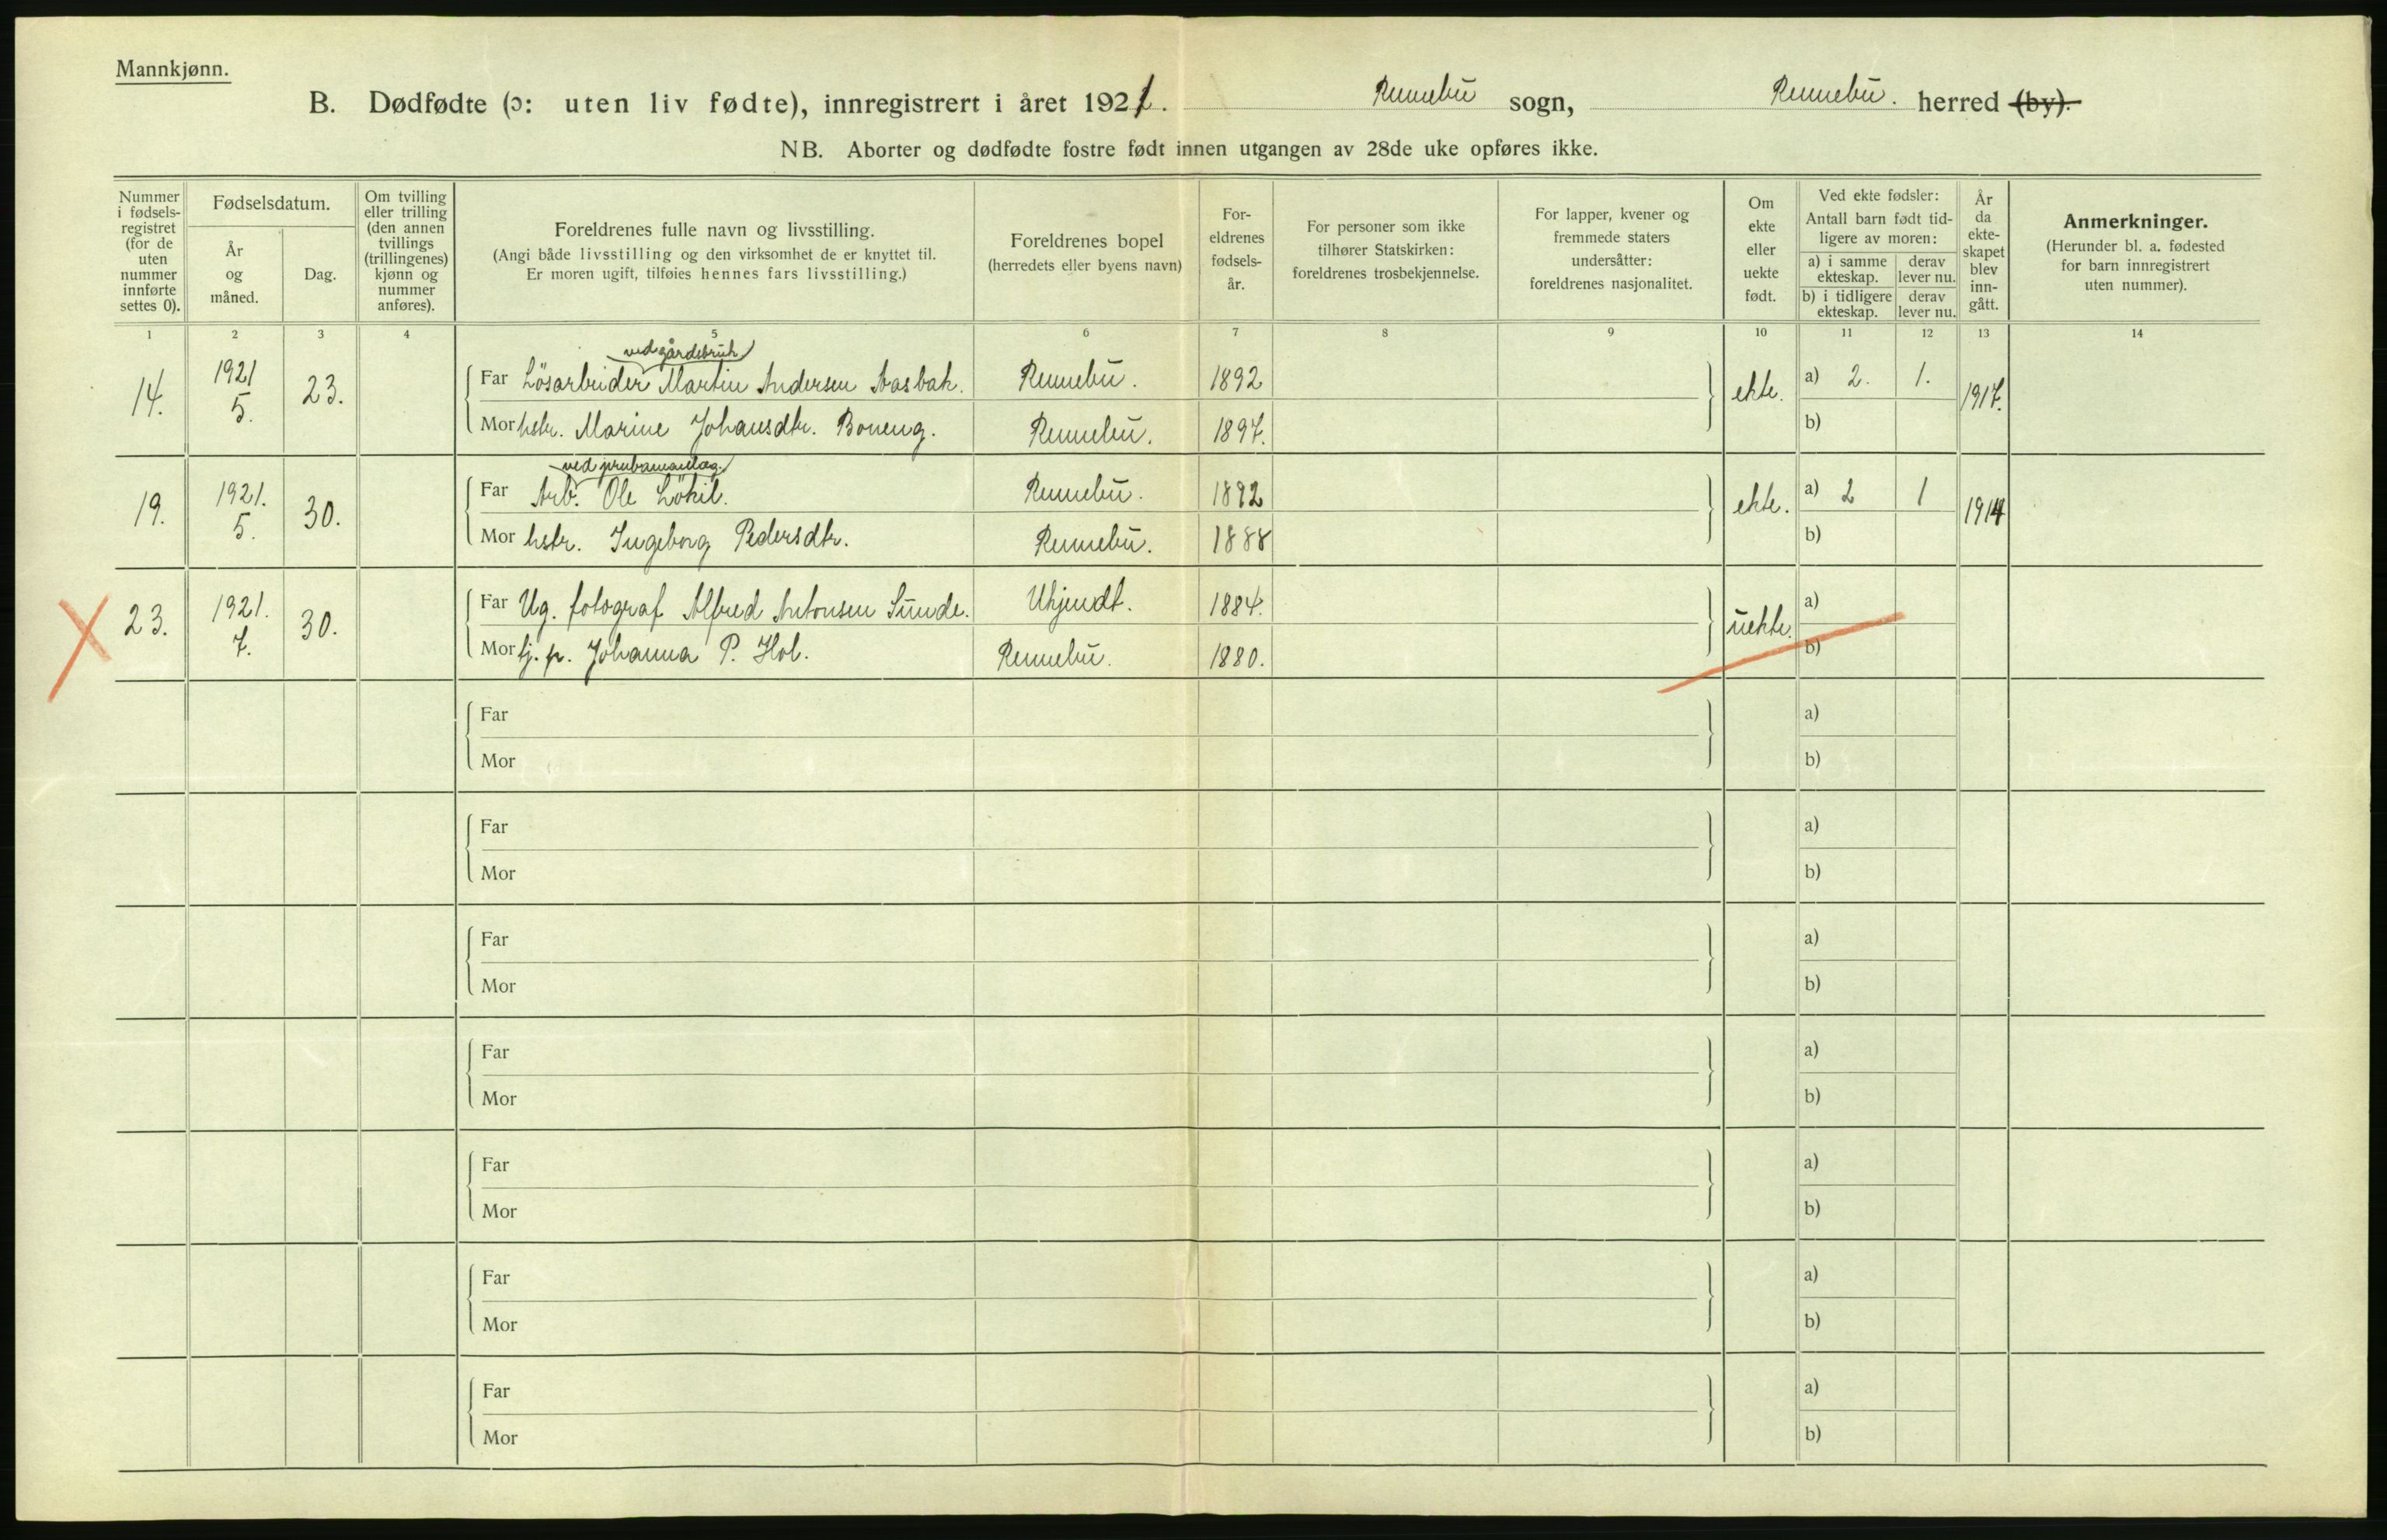 Mannkjønn.
B. Dødfødte (ɔ: uten liv fødte), innregistrert i året 1921. Rennebu sogn, Rennebu. herred (by).
NB. Aborter og dødfødte fostre født innen utgangen av 28de uke opføres ikke.
Nummer i fødsels-registret (for de uten nummer innførte settes 0).
Fødselsdatum.
År og måned.
Dag.
Om tvilling eller trilling (den annen tvillings (trillingenes) kjønn og nummer anføres).
Foreldrenes fulle navn og livsstilling.
(Angi både livsstilling og den virksomhet de er knyttet til.
Er moren ugift, tilføies hennes fars livsstilling.)
Foreldrenes bopel
(herredets eller byens navn)
For-eldrenes fødsels-år.
For personer som ikke tilhører Statskirken: foreldrenes trosbekjennelse.
For lapper, kvener og fremmede staters undersåtter: foreldrenes nasjonalitet.
Om ekte eller uekte født.
Ved ekte fødsler:
Antall barn født tid-ligere av moren:
a) i samme ekteskap.
derav lever nu.
b) i tidligere ekteskap.
derav lever nu.
År da ekte-skapet blev inn-gått.
Anmerkninger.
(Herunder bl. a. fødested for barn innregistrert uten nummer).
1 2 3 4 5 6 7 8 9 10 11 12 13 14
ved gårdsbruk
14. 1921 5. 23. Far Lösarbeider Martin Andersen Aasbak. Rennebu. 1892 ekte. a) 2. 1. 1917.
Mor hstr. Marine Johansdtr. Boneng. Rennebu. 1897. b)
ved
19. 1921. 5. 30. Far Arb. Ole Lökil. Rennebu. 1892 ekte. a) 2 1 1914
Mor hstr. Ingeborg Pedersdtr. Rennebu. 1888 b)
23. 1921. 7. 30. Far Ug. fotograf Alfred Antonsen Sunde. Ukjendt. 1884. uekte. a)
Mor tj. p. Johanna P. Hol. Rennebu. 1880. b)
Far a)
Mor b)
Far a)
Mor b)
Far a)
Mor b)
Far a)
Mor b)
Far a)
Mor b)
Far a)
Mor b)
Far a)
Mor b)